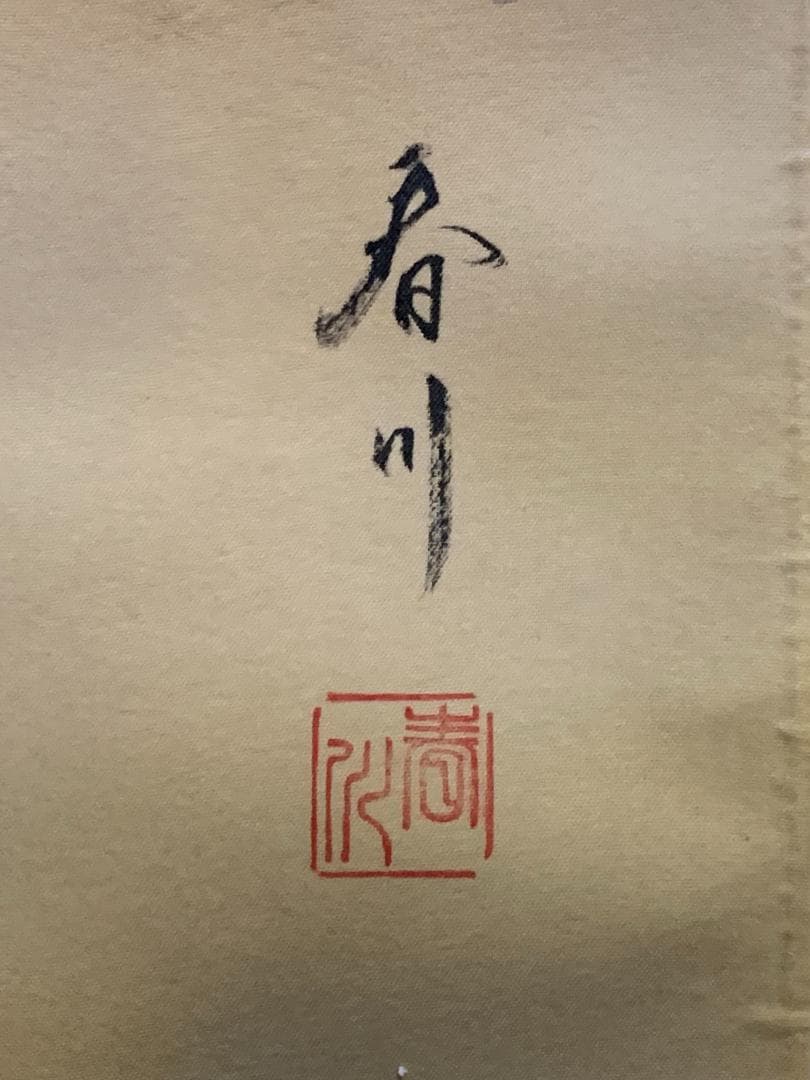 春川
春川